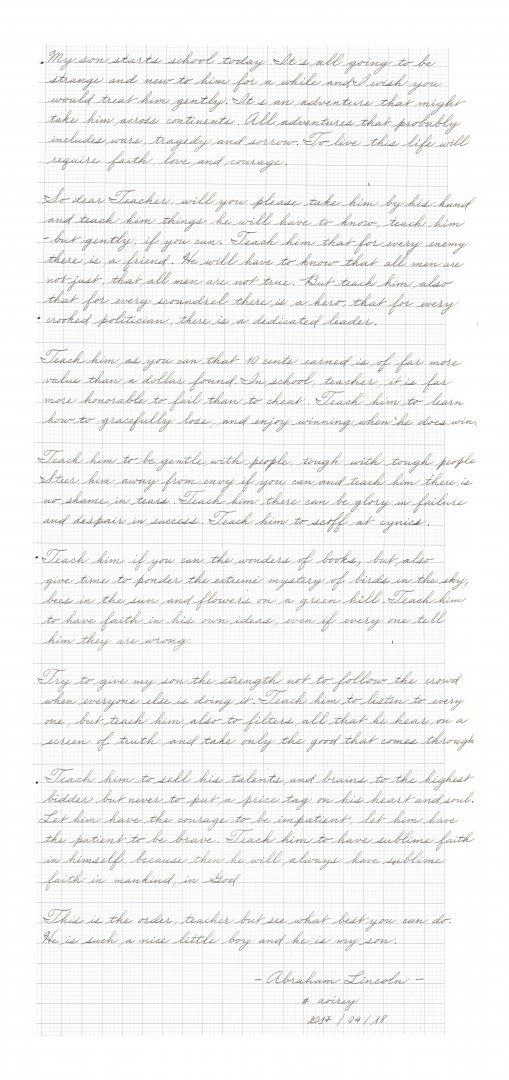 My son starts school today. It's all going to be
strange and new to him for a while and I wish you
would treat him gently. It's an adventure that might
take him across continents. All adventures that probably
includes wars, tragedy and sorrow. To live this life will
require faith, love and courage.
So dear Teacher, will you please take him by his hand
and teach him things he will have to know, teach him
- but gently, if you can. Teach him that for every enemy
there is a friend. He will have to know that all men are
not just, that all men are not true. But teach him also
that for every scoundrel there is a hero, that for every
crooked politician, there is a dedicated leader.
Teach him, as you can that 10 cents earned is of far more
value than a dollar found. In school, teacher, it is far
more honorable to fail than to cheat. Teach him to learn
how to gracefully lose, and enjoy winning when he does win.
Teach him to be gentle with people, tough with tough people
Steer him away from envy if you can and teach him there is
no shame in tears. Teach him there can be glory in failure
and despair in success. Teach him to scoff at cynics.
Teach him if you can the wonders of books, but also
give time to ponder the extreme mystery of birds in the sky,
bees in the sun and flowers on a green hill. Teach him
to have faith in his own ideas, even if every one tell
him they are wrong.
Try to give my son the strength not to follow the crowd
when everyone else is doing it. Teach him to listen to every
one, but teach him also to filters all that he hear on a
screen of truth and take only the good that comes through
Teach him to sell his talents and brains to the highest
bidder but never to put a price tag on his heart and soul.
Let him have the courage to be impatient, let him have
the patient to be brave. Teach him to have sublime faith
in himself, because then he will always have sublime
faith in mankind, in God
This is the order, teacher but see what best you can do.
He is such a nice little boy and he is my son.
- Abraham Lincoln -
# aoirey
2017 / 04 / 18